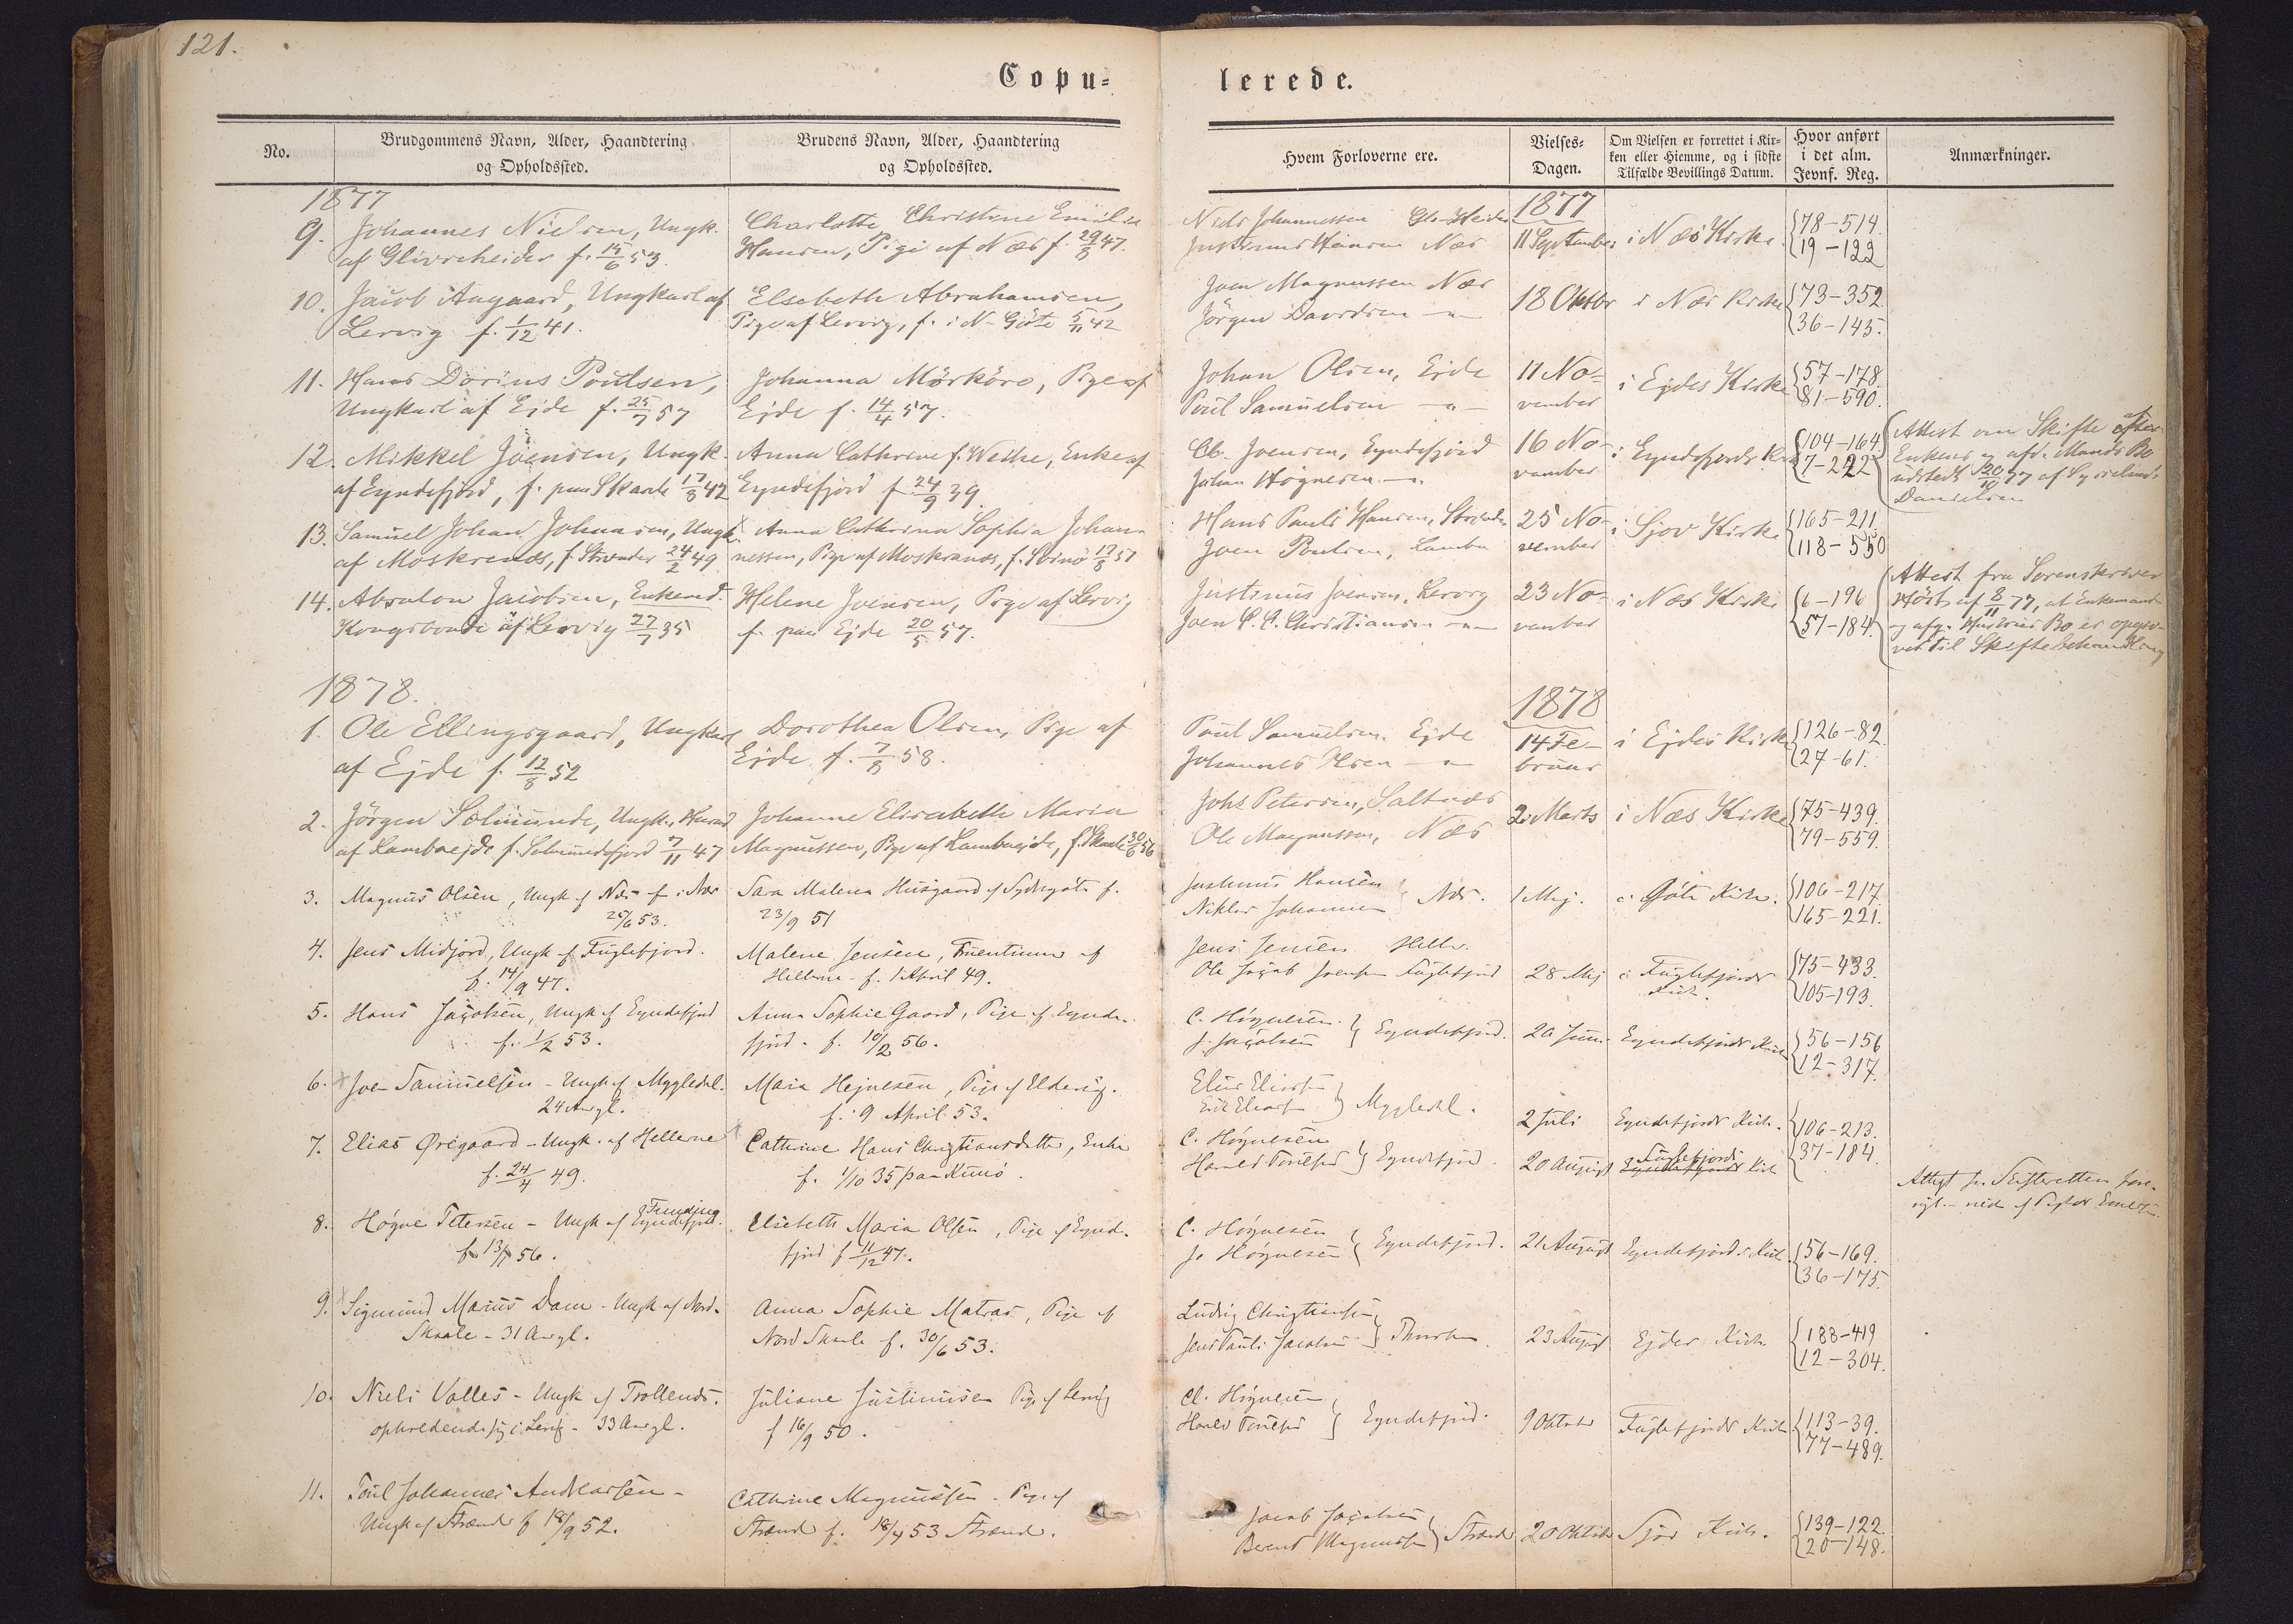 121.
Copu=
lerede.
No.
Brudgommens Navn, Alder, Haandtering
og Opholdssted.
Brudens Navn, Alder, Haandtering
og Opholdssted.
Hvem Forloverne ere.
Vielses-
Dagen.
Om Vielsen er forrettet i Kir-
ken eller Hiemme, og i sidste
Tilfælde Bevillings Datum.
Hvor anført
i det alm.
Jevnf. Reg.
Anmærkninger.
1877
1877
9. Johannes Nielsen, Ungk.
af Glivreheider f. 15/6 53.
Charlotte Christine Emilie
Hansen, Pige af Næs f. 29/8 47.
Niels Johannessen
Justinus Hansen Næs
11 September
i Næs Kirke
78-514.
19-122
10. Jacob Aagaard, Ungkarl af
Lervig f. 1/12 41.
Elsebeth Abrahamsen,
Pige af Lervig, f. i N-Gøte 5/11 42
Joen Magnussen Næs
Jörgen Davidsen -"-
18 Oktbr
i Næs Kirke
73-352.
36-145.
11. Hans Dorius Poulsen,
Ungkarl af Ejde f. 25/7 57
Johanna Mörköre, Pige af
Ejde f. 14/4 57.
Johan Olsen, Ejde
Poul Samuelsen -"-
11 No-
vember
i Ejdes Kirke
57-178.
81-590.
12. Mikkel Joensen, Ungk.
af Eyndefjord, f. paa Skaale 17/8 42
Anna Cathrine f. Weihe, Enke af
Eyndefjord f. 24/9 39.
Cl. Joensen, Eyndefjord
Johan Högnesen -"-
16 No-
vember
i Eyndefjords Kirke
104-164
7-222
Attest om Skifte efter
Enkens og afd. Mands Bo
udstedt 20/10 77 af
Danielsen
13. Samuel Johan Johansen, Ungk.
af Moskrenæs, f. Strænder 24/2 49
Anna Cathrina Sophia Johan-
nessen, Pige af Moskrenæs, f. Svinö 17/8 51
Hans Pauli Hansen, Strænder
Joen Poulsen, Lamba
25 No-
vember
i Sjov Kirke
165-211.
118-550
14. Absalon Jacobsen, Enkemd.
Kongsbonde af Lervig 27/7 35
Helene Joensen, Pige af Lervig
f. paa Ejde 20/5 57.
Justinus Joensen, Lervig
Joen P. C. Christiansen -"-
23 No-
vember
i Næs Kirke
6-196
57-184.
Attest fra Sorenskriver
Höst af 8/11 77, at Enkemands
og afg. Hustrues Bo er opgi-
vet til Skiftebehandling
1878.
1878
1. Ole Ellingsgaard, Ungkarl
af Ejde f. 12/8 52
Dorothea Olsen, Pige af
Ejde f. 7/8 58.
Poul Samuelsen Ejde
Johannes Olsen -"-
14 Fe-
bruar
i Ejdes Kirke
126-82.
27-61.
2. Jörgen Solmunde, Ungk.
af Lambaejde f. Solmundefjord 7/11 47
Johanne Elisabeth Maria
Magnussen, Pige af Lambaejde, f. Skaale 30/6 56
Johs Petersen, Saltnæs
Ole Magnussen, Næs
2. Marts
i Næs Kirke
75-439.
79-559.
3. Magnus Olsen, Ungk af Næs f. i Næs
25/6 53.
Sara Malena Husgaard af Sydregøte f.
23/9 51
Justinus Hansen
Niklas Johannesen Næs.
1 Mej.
i Gøte Kirke.
106-217.
165-221.
4. Jens Midjord, Ungk af Fuglefjord.
f. 14/9 47.
Malene Jensen, Fruentimer af
Hellerne - f. 1 April 49.
Jens Jensen Heller.
Ole Jacob Joensen Fuglefjord
28 Mej
i Fuglefjords
Kirke.
75-433.
105-193.
5. Hans Jacobsen, Ungk af Eyndefjord
f. 1/2 53.
Anna Sophie Gaard, Pige af Eynde-
fjord. f. 10/2 56.
C. Høgnesen
J. Jacobsen Eyndefjord.
20 Juni
Eyndefjords Kirke
56-156
12-317.
6. Joen Samuelsen - Ungk af Myggledal.
24 Aar gl.
Maria Hejnesen, Pige af Eldevig.
f. 9 April 53.
Elias Eliassen
Erik Eliassen Myggledal.
2 Juli
Eyndefjords Kirke.
106-213.
37-184.
7. Elias Øregaard - Ungk. af Hellerne
f. 24/4 49.
Cathrine Hans Christiansdatter, Enke
f. 1/10 35 paa Kunø.
C. Høgnesen
Harald Poulsen Eyndefjord.
20 August
Fuglefjords
Eyndefjords Kirke
Attest fra Skifteretten
8. Høgne Petersen - Ungk af Eyndefjord.
Funding
f. 13/1 56.
Elsebeth Maria Olsen, Pige af Eynde-
fjord f. 11/12 47.
C. Høgnesen
J. Høgnesen Eyndefjord.
21 August
Eyndefjords Kirke
56-169.
36-175.
9. Sigmund Marius Dam - Ungk af Nord-
Skaale - 31 Aar gl.
Anna Sophie Matras, Pige af
Nord Skaale f. 30/6 53.
Ludvig Christiansen
Jens Pauli Jacobsen
23 August
Ejdes Kirke.
188-419
12-304.
10. Niels Valles - Ungk af Trollenæs.
opholdende sig i Lervig - 33 Aar gl.
Juliane Justinussen Pige af Lervig
f. 16/9 50.
Cl. Høgnesen
Harald Poulsen Eyndefjord.
9 Oktober
Fuglefjords Kirke
113-39.
77-489.
11. Poul Johannes Andreasen -
Ungk af Strænder f. 18/9 52.
Cathrine Magnussen - Pige af
Strænd f. 18/4 53 Strænd.
Jacob Jacobsen
Berent Magnussen Strænd
20 Oktober
Sjov Kirke.
139-122.
20-148.